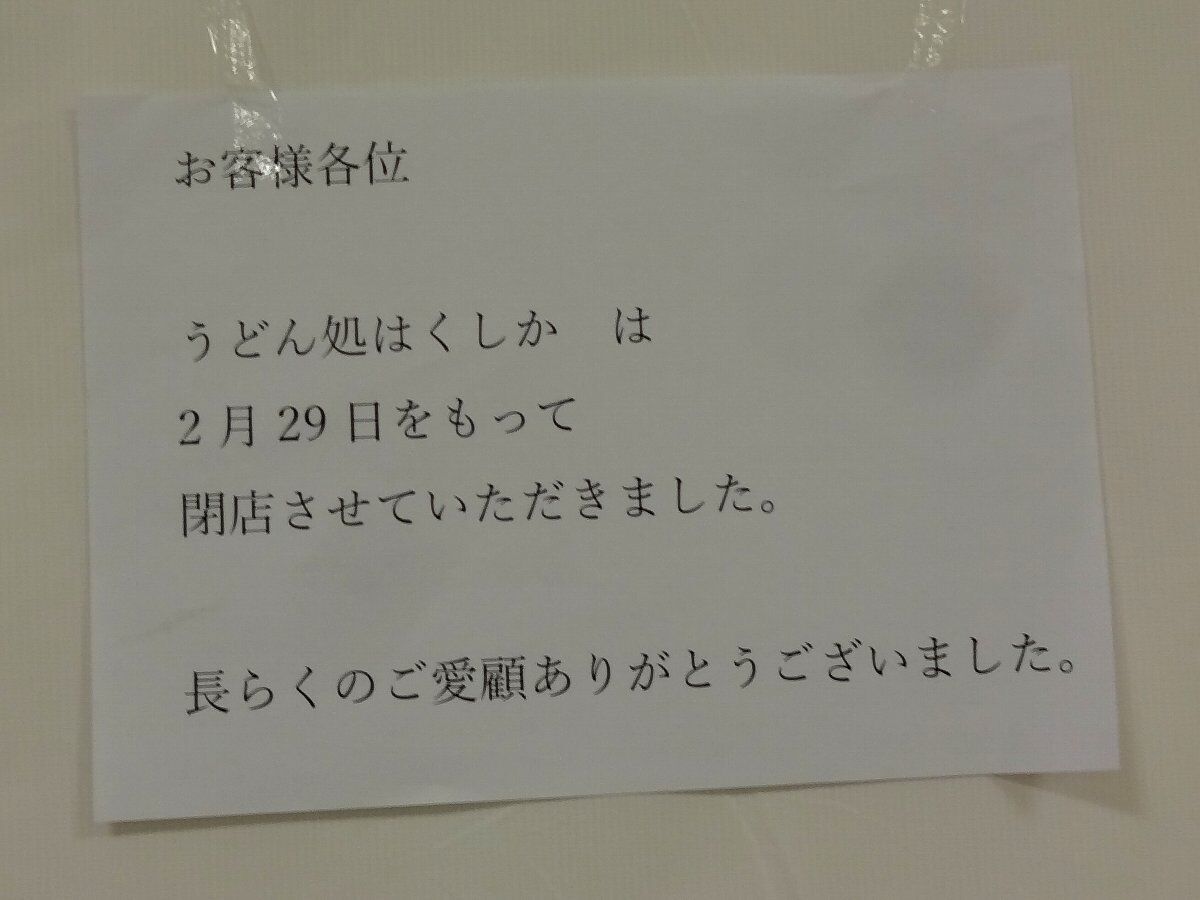 お客様各位
うどん処はくしか　は
2月29日をもって
閉店させていただきました。
長らくのご愛顧ありがとうございました。